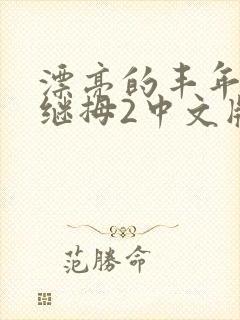 漂亮的丰年
继拇2中文版
范勝命